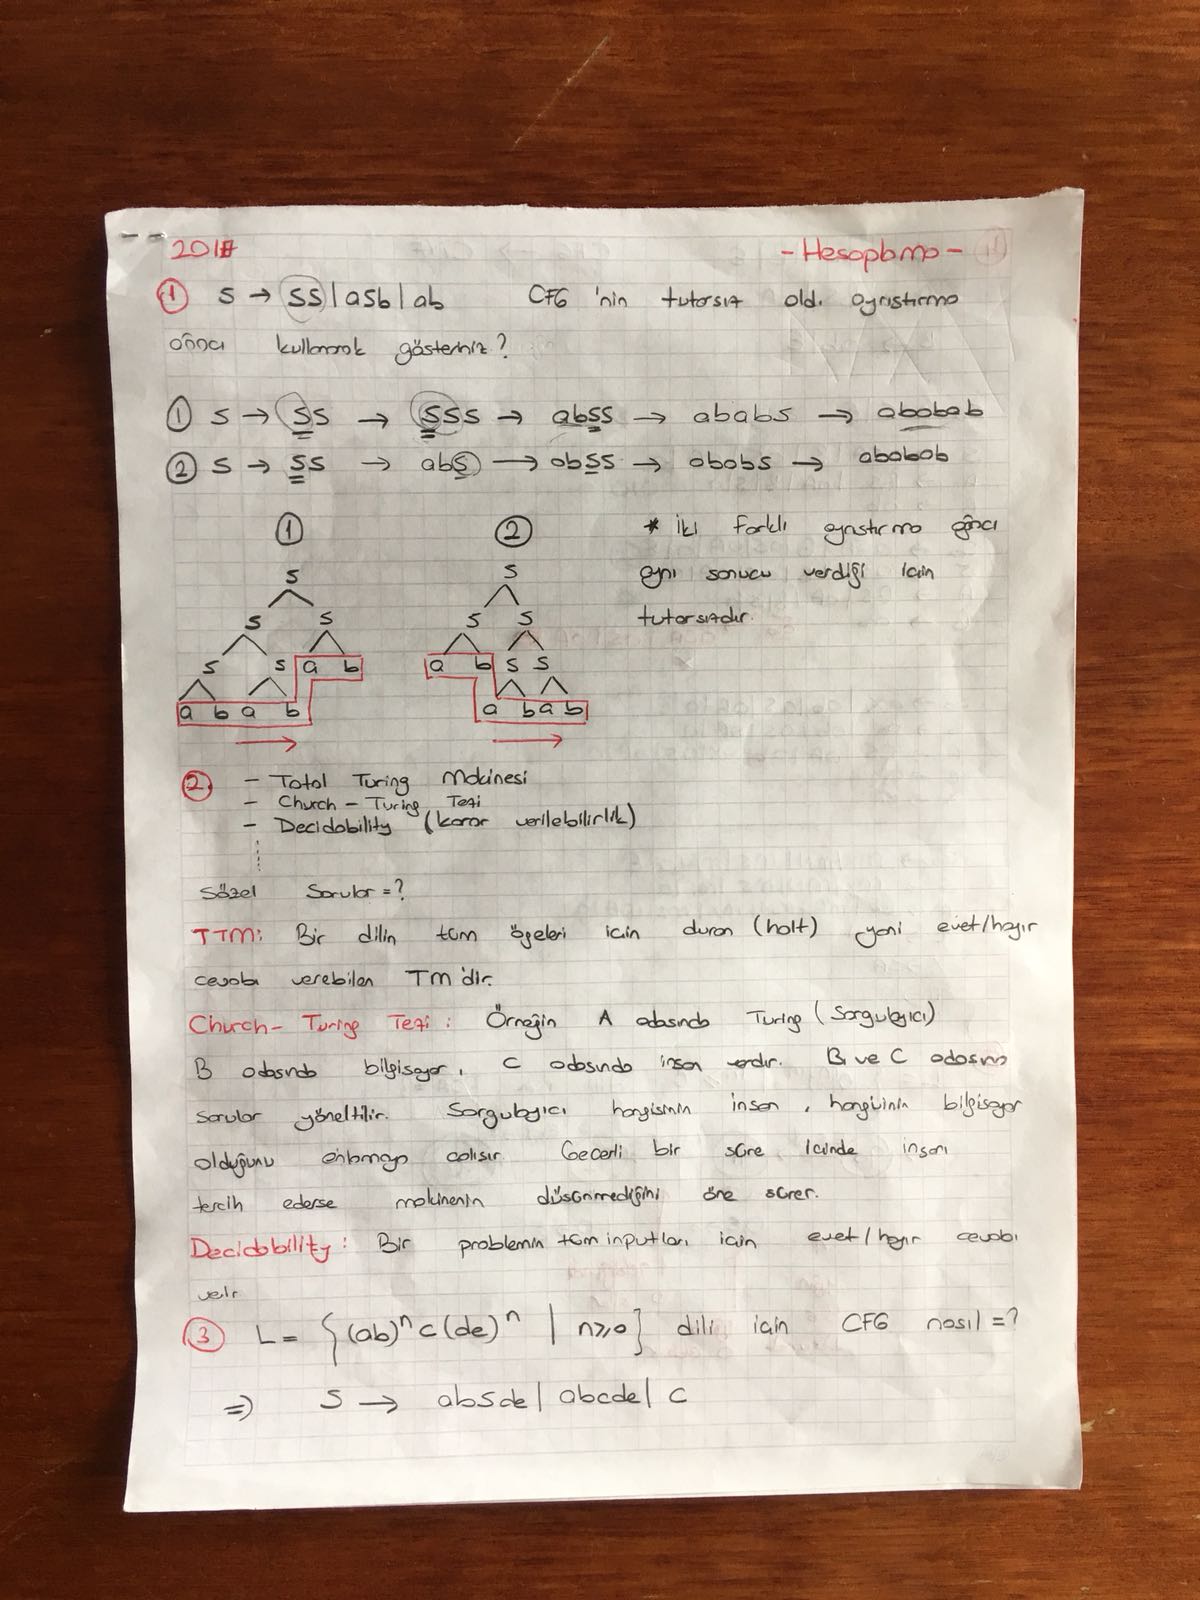 2017 - Hesaplama -
① S → SS | aSb | ab CFG 'nin tutarsız old. ayrıştırma
ağacı kullanarak gösteriniz?
① S → SS → SSS → abSS → ababS → ababab
② S → SS → abS → abSS → ababS → ababab
① ② * İki farklı ayrıştırma ağacı
aynı sonucu verdiği için
tutarsızdır.
S S
S S S S
S S a b a b S S
a b a b a b a b
② - Total Turing Makinesi
- Church - Turing Tezi
- Decidability (karar verilebilirlik)
Sözel Sorular = ?
TTM: Bir dilin tüm öğeleri için duran (halt) yani evet/hayır
cevabı verebilen TM'dir.
Church - Turing Tezi : Örneğin A odasında Turing (Sorgulayıcı)
B odasında bilgisayar, C odasında insan vardır. B ve C odasına
sorular yöneltilir. Sorgulayıcı hangisinin insan, hangisinin bilgisayar
olduğunu anlamaya çalışır. Geçerli bir süre içinde insanı
tercih ederse makinenin düşünmediğini öne sürer.
Decidability : Bir problemin tüm inputları için evet / hayır cevabı
verir
③ L = {(ab)ⁿ c (de)ⁿ | n≥0} dili için CFG nasıl = ?
⇒ S → abSde | abcde | c